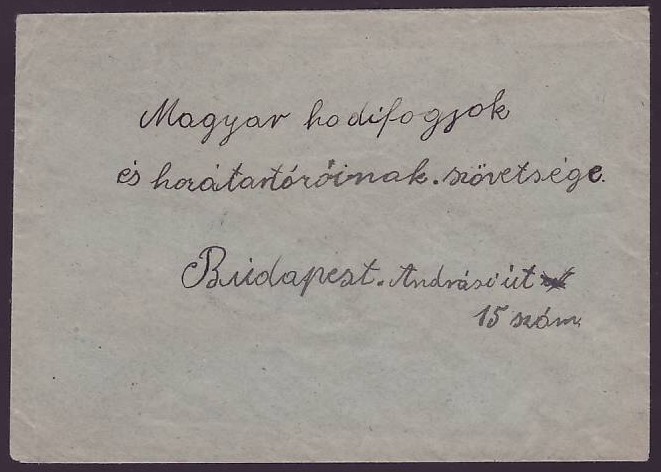 Magyar hodifogjok
és horátartóróinak. szövetsége.
Budapest. Andrási út
15 szám.